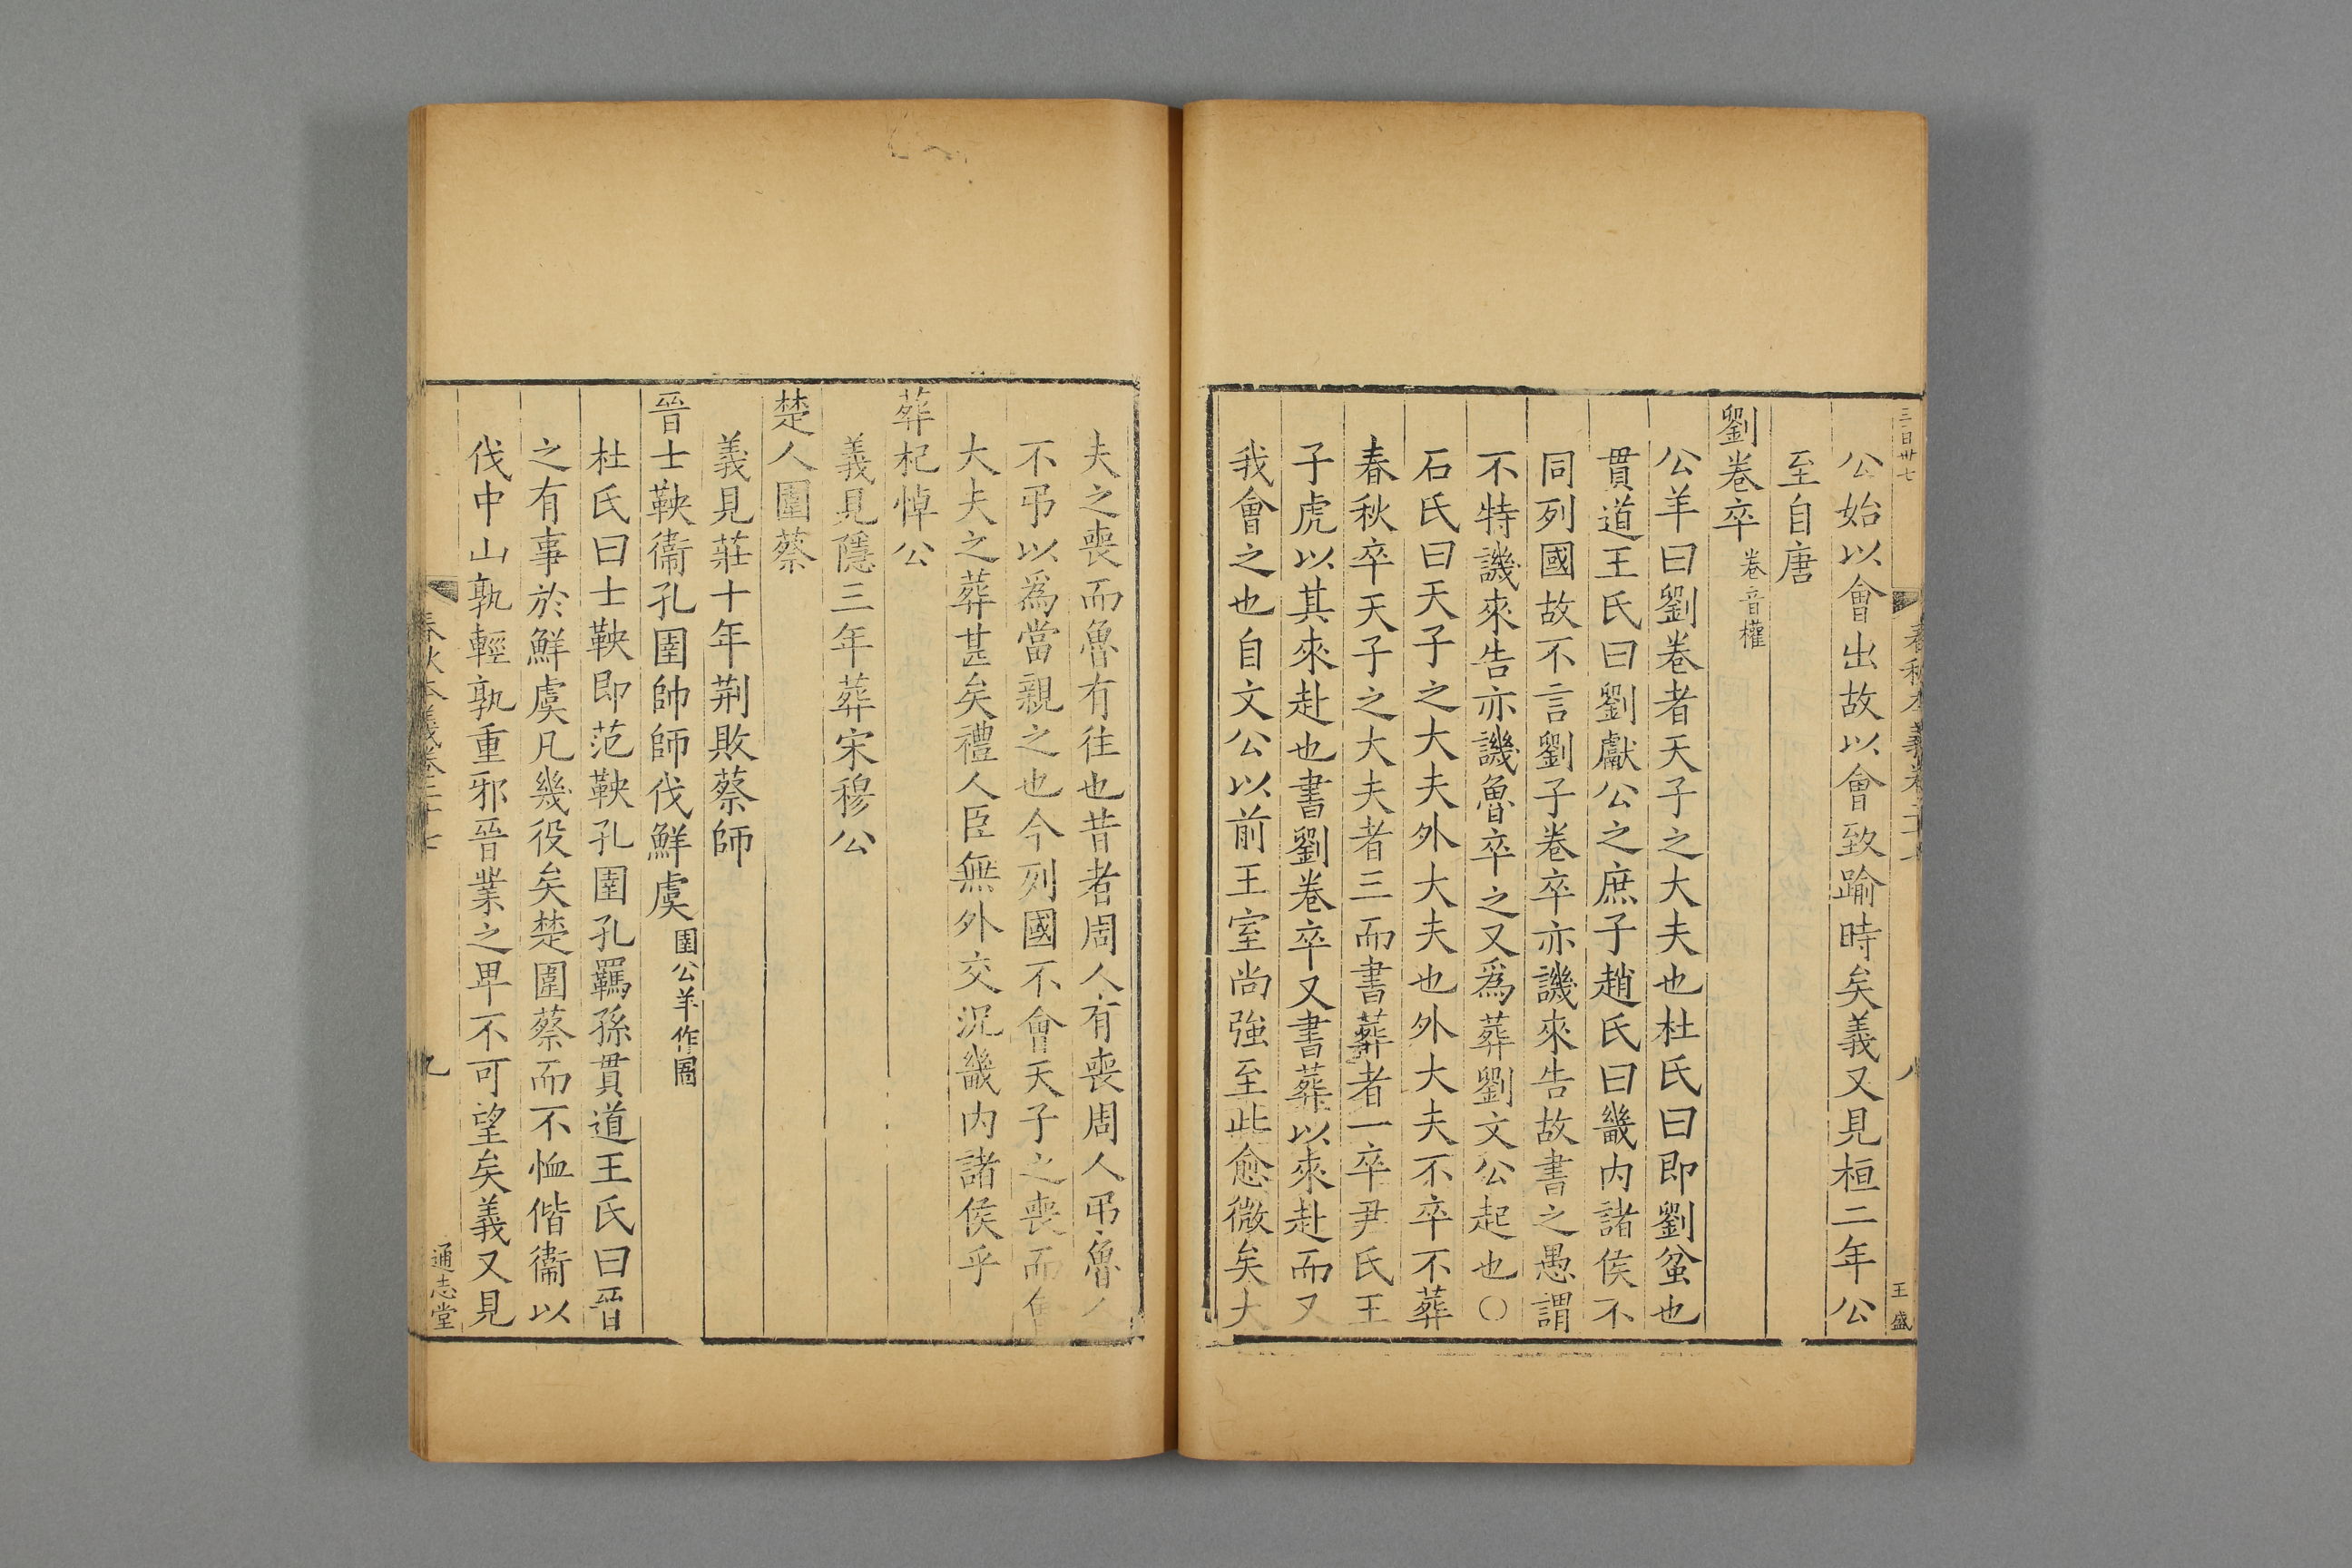 三百卅七
春秋本義卷二十
八
王盛
公始以會出故以會致踰時矣義又見桓二年公
至自唐
劉卷卒 卷音權
公羊曰劉卷者天子之大夫也杜氏曰即劉蚠也
貫道王氏曰劉獻公之庶子趙氏曰畿内諸侯不
同列國故不言劉子卷卒亦譏來告故書之愚謂
不特譏來告亦譏魯卒之又爲葬劉文公起也○
石氏曰天子之大夫外大夫也外大夫不卒不葬
春秋卒天子之大夫者三而書葬者一卒尹氏王
子虎以其來赴也書劉卷卒又書葬以來赴而又
我會之也自文公以前王室尚強至此愈微矣大
夫之喪而魯有往也昔者周人有喪周人弔魯人
不弔以爲當親之也今列國不會天子之喪而
大夫之葬甚矣禮人臣無外交況畿内諸侯乎
葬杞悼公
義見隱三年葬宋穆公
楚人圍蔡
義見莊十年荆敗蔡師
晉士鞅衞孔圉帥師伐鮮虞 圉公羊作圄
杜氏曰士鞅即范鞅孔圉孔羈孫貫道王氏曰晉
之有事於鮮虞凡幾役矣楚圍蔡而不恤偕衞以
伐中山孰輕孰重邪晉業之卑不可望矣義又見
春秋本義卷二十七
九
通志堂